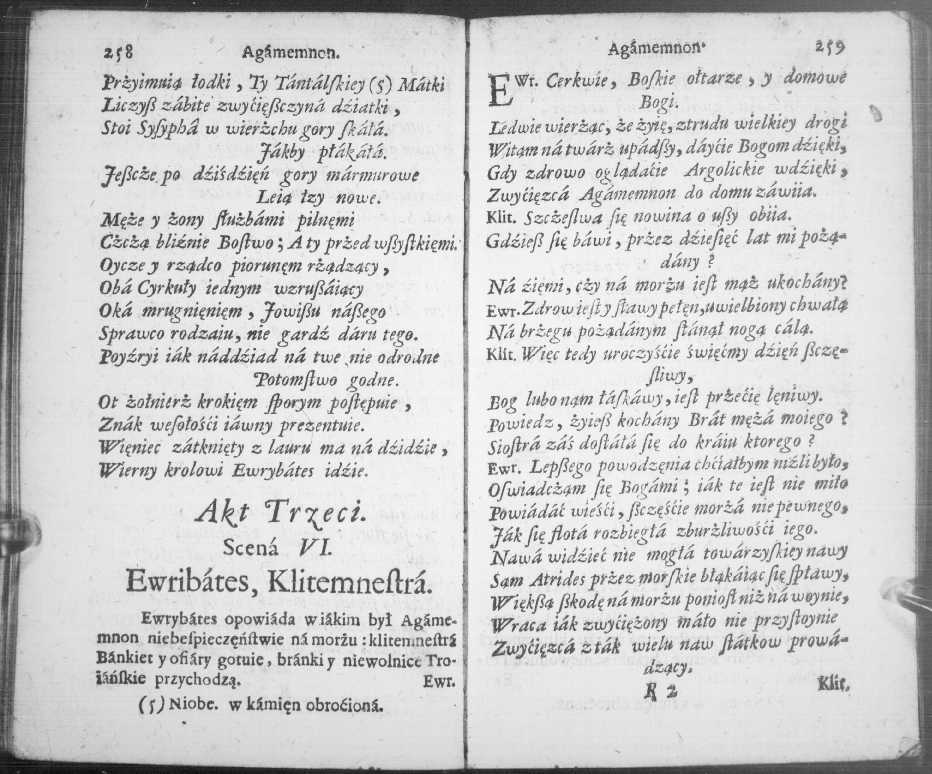 258 Agámemnon.
Przyimuią łodki, Ty Tántálſkiey (5) Mátki
Liczyß zábite zwyćięßczyná dźiatki,
Stoi Syſyphá w wierzchu gory ſkáłá.
Jákby płákáłá.
Jeßcże po dźiśdźięń gory mármurowe
Leią łzy nowe.
Męże y żony ſłużbámi pilnęmi
Cżcżą bliźnie Boſtwo; A ty przed wſßyſtkięmi.
Oycze y rządco piorunęm rżądzący,
Obá Cyrkuły iednym wzrußáiący
Oká mrugnięnięm, Jowißu náßego
Sprawco rodzaiu, nie gardź daru tego.
Poyźryi iák náddźiad ná twe nie odrodne
Potomſtwo godne.
Ot żołnierż krokięm ſporym poſtępuie,
Znák weſołośći iáwny prezentuie.
Więniec zátknięty z lauru ma ná dźidźie,
Wierny krolowi Ewrybátes idźie.
Akt Trzeci.
Scená VI.
Ewribátes, Klitemneſtrá.
Ewrybátes opowiáda wiákim był Agáme-
mnon niebeſpieczęńſtwie ná morżu: klitemneſtrá
Bánkiet y ofiáry gotuie, bránki y niewolnice Tro-
iáńſkie przychodzą. Ewr.
(5) Niobe. w kámięn obroćioná.
Agámemnon. 259
EWr. Cerkwie, Boſkie ołtarze, y domowe
Bogi.
Ledwie wierżąc, że żyię, ztrudu wielkiey drogi
Witam ná twárż upádßy, dáyćie Bogom dźięki,
Gdy zdrowo oglądaćie Argolickie wdźięki,
Zwyćięzcá Agámemnon do domu záwiia.
Klit. Szcżeſlwa ſię nowina o ußy obiia.
Gdźieß ſię báwi, przez dźieſięć lat mi pożą-
dány?
Ná źięmi, cży ná morżu ieſt mąż ukochány?
Ewr. Zdrow ieſt y ſławy pełęn, uwielbiony chwałą
Ná brżegu pożądánym ſtánął nogą cáłą.
Klit. Więc tedy uroczyśćie święćmy dźięń ßczę-
ſliwy,
Bog lubo nąm łáſkáwy, ieſt przećię lęniwy.
Powiedz, żyieß kochány Brát mężá moiego?
Sioſtrá záś doſtáłá ſię do kráiu ktorego?
Ewr. Lepßego powodzęnia chćiałbym niźli było,
Oſwiadcżąm ſię Bogámi; iák te ieſt nie miło
Powiádáć wieśći, ßczęśćie morżá nie pewnego,
Ják ſię flotá rozbiegłá zburżliwośći iego.
Nawá widźieć nie mogłá towárzyſkiey nawy
Sąm Atrides przez morſkie błąkáiąc ſię ſpławy,
Więkßą ßkodę ná morżu ponioſł niż ná woynie,
Wraca iák zwyćiężony máło nie przyſtoynie
Zwyćięzcá z ták wielu naw ſtátkow prowá-
dzący.
R 2 Klit.